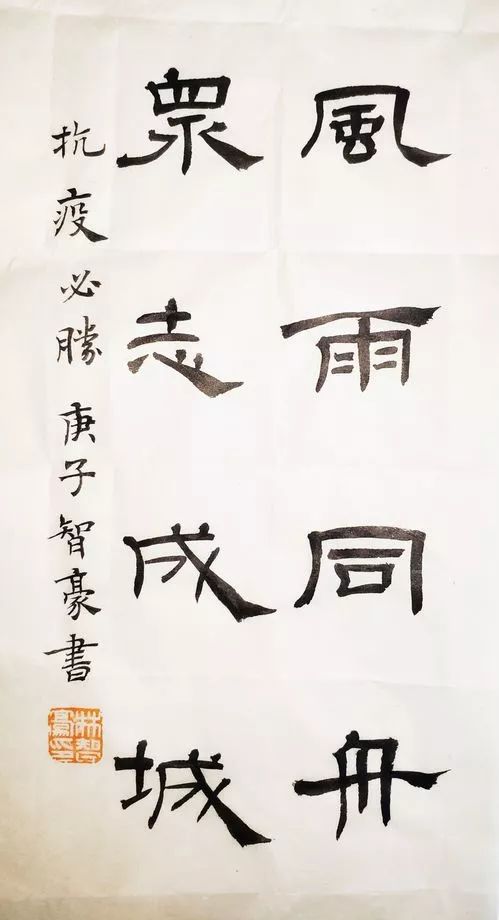 風雨同舟
衆志成城
抗疫必勝 庚子智豪書
林智豪印